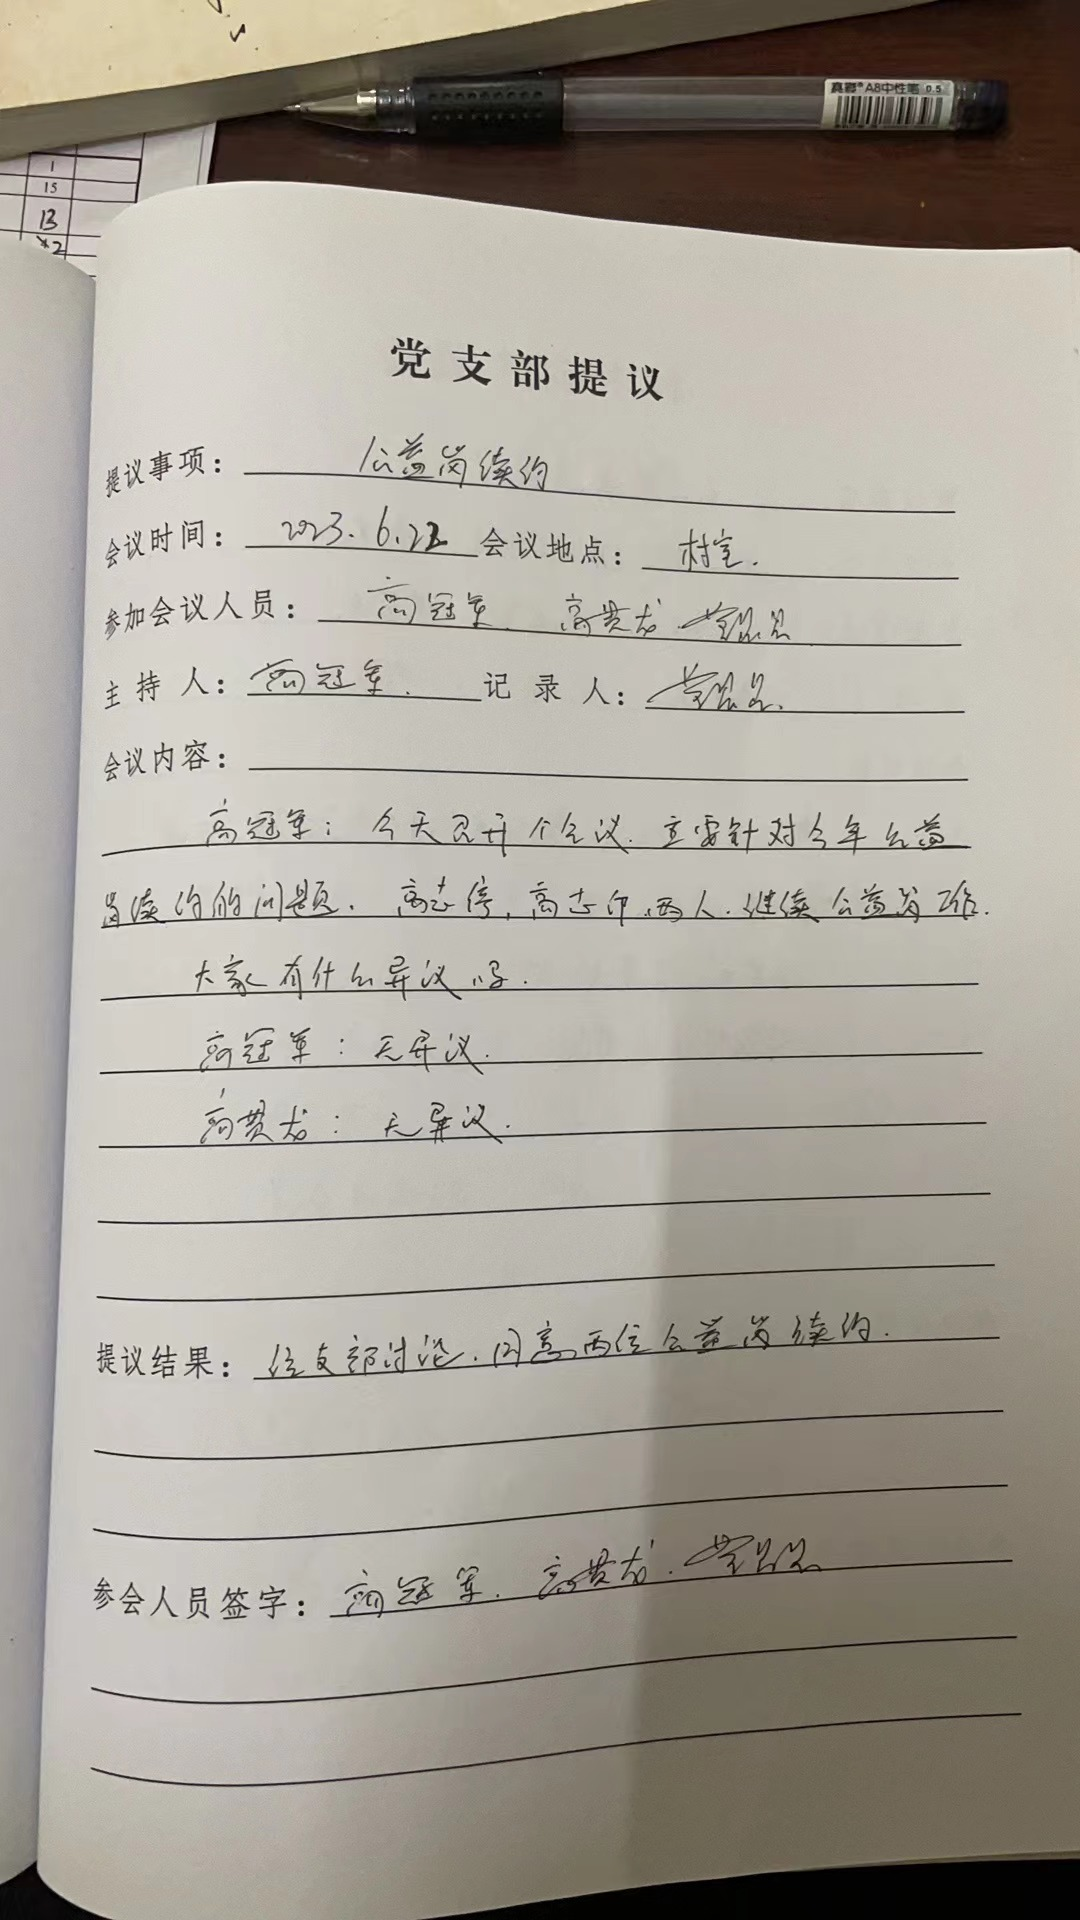 真彩® A8中性笔 0.5
1
15
13
党支部提议
提议事项：公益岗续约
会议时间：2023.6.22 会议地点：村室.
参加会议人员：高冠军. 高贯龙.
主持人：高冠军. 记录人：
会议内容：
高冠军：今天召开个会议.主要针对今年公益
岗续约的问题. 高志 , 高志印.两人.继续公益岗工作.
大家有什么异议吗.
高冠军：无异议.
高贯龙：无异议.
提议结果：经支部讨论.同意两位公益岗续约.
参会人员签字：高冠军. 高贯龙.